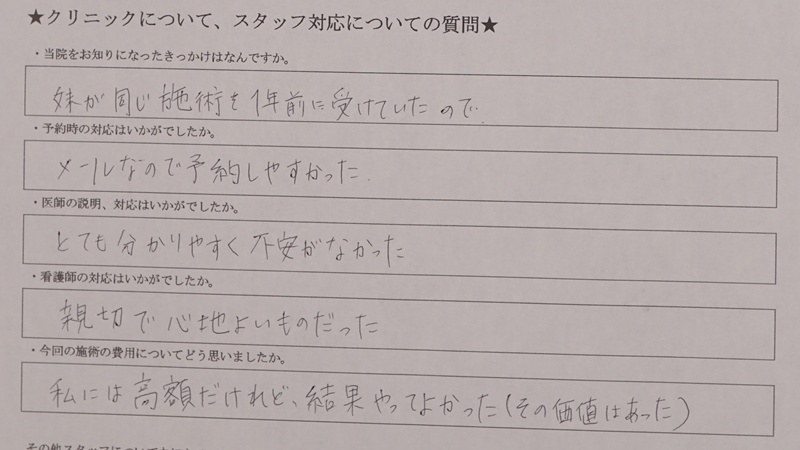 ★クリニックについて、スタッフ対応についての質問★
・当院をお知りになったきっかけはなんですか。
妹が同じ施術を1年前に受けていたので.
・予約時の対応はいかがでしたか。
メールなので予約しやすかった.
・医師の説明、対応はいかがでしたか。
とても分かりやすく不安がなかった
・看護師の対応はいかがでしたか。
親切で心地よいものだった
・今回の施術の費用についてどう思いましたか。
私には高額だけれど、結果やってよかった(その価値はあった)
その他スタッフについて